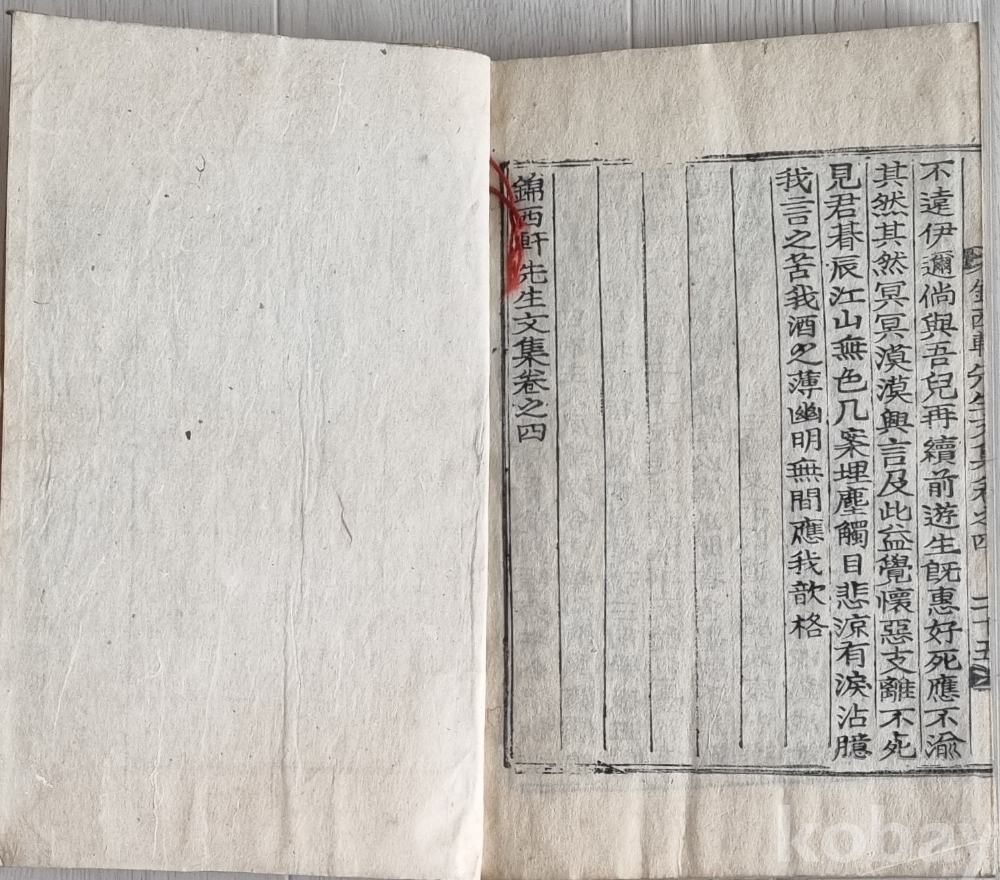 錦西軒先生文集卷之四 二十五
不遠伊邇倘與吾兒再續前遊生旣惠好死應不渝
其然其然冥冥漠漠興言及此益覺懷惡支離不死
見君朞辰江山無色几案埋塵觸目悲涼有淚沾臆
我言之苦我酒之薄幽明無間應我歆格
錦西軒先生文集卷之四
kobay